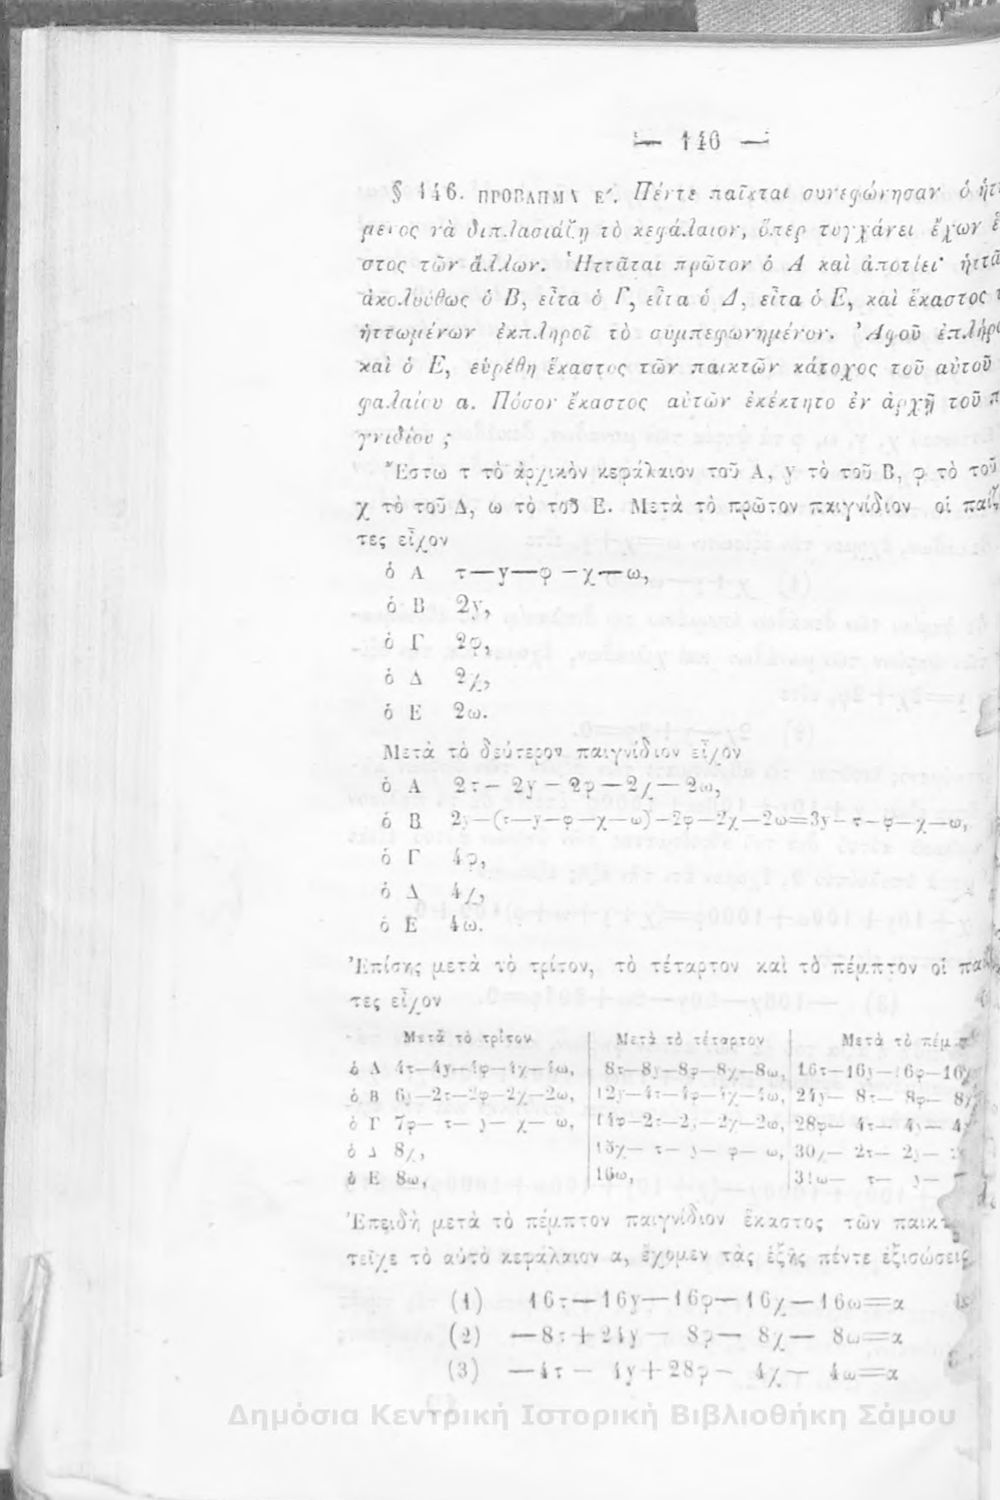 — 140 —
§ 146. ΠΡΟΒΛΗΜΑ Ε΄. Πέντε παῖκται συνεφώνησαν ὁ ἡτ
μενος νὰ διπλασιάζῃ τὸ κεφάλαιον, ὅπερ τυγχάνει ἔχων ἕ
στος τῶν ἄλλων. Ἡττᾶται πρῶτον ὁ Α καὶ ἀποτίει· ἡττᾶ
ἀκολούθως ὁ Β, εἶτα ὁ Γ, εἶτα ὁ Δ, εἶτα ὁ Ε, καὶ ἕκαστος τ
ἡττωμένων ἐκπληροῖ τὸ συμπεφωνημένον. Ἀφοῦ ἐπλήρ
καὶ ὁ Ε, εὑρέθη ἕκαστος τῶν παικτῶν κάτοχος τοῦ αὐτοῦ
φαλαίου α. Πόσον ἕκαστος αὐτῶν ἐκέκτητο ἐν ἀρχῇ τοῦ π
γνιδίου ;
Ἔστω τ τὸ ἀρχικὸν κεφάλαιον τοῦ Α, γ τὸ τοῦ Β, φ τὸ τοῦ
χ τὸ τοῦ Δ, ω τὸ τοῦ Ε. Μετὰ τὸ πρῶτον παιγνίδιον οἱ παῖ
τες εἶχον
ὁ Α τ—y—φ—χ—ω,
ὁ Β 2y,
ὁ Γ 2φ,
ὁ Δ 2χ,
ὁ Ε 2ω.
Μετὰ τὸ δεύτερον παιγνίδιον εἶχον
ὁ Α 2τ—2y—2φ—2χ—2ω,
ὁ Β 2y—(τ—y—φ—χ—ω)—2φ—2χ—2ω=3y—τ—φ—χ—ω,
ὁ Γ 4φ,
ὁ Δ 4χ,
ὁ Ε 4ω.
Ἐπίσης μετὰ τὸ τρίτον, τὸ τέταρτον καὶ τὸ πέμπτον οἱ παῖ
τες εἶχον
Μετὰ τὸ τρίτον Μετὰ τὸ τέταρτον Μετὰ τὸ πέμπ
ὁ Α 4τ—4y—4φ—4χ—4ω, 8τ—8y—8φ—8χ—8ω, 16τ—16y—16φ—16χ
ὁ Β 6y—2τ—2φ—2χ—2ω, 12y—4τ—4φ—4χ—4ω, 24y— 8τ— 8φ— 8χ
ὁ Γ 7φ— τ— y— χ— ω, 14φ—2τ—2y—2χ—2ω, 28φ— 4τ— 4y— 4χ
ὁ Δ 8χ, 15χ— τ— y— φ— ω, 30χ— 2τ— 2y—
ὁ Ε 8ω, 16ω, 31ω— τ— y—
Ἐπειδὴ μετὰ τὸ πέμπτον παιγνίδιον ἕκαστος τῶν παικτ
τεῖχε τὸ αὐτὸ κεφάλαιον α, ἔχομεν τὰς ἑξῆς πέντε ἐξισώσεις
(1) 16τ—16y—16φ—16χ—16ω=α
(2) —8τ+24y— 8φ— 8χ— 8ω=α
(3) —4τ— 4y+28φ— 4χ— 4ω=α
Δημόσια Κεντρική Ιστορική Βιβλιοθήκη Σάμου